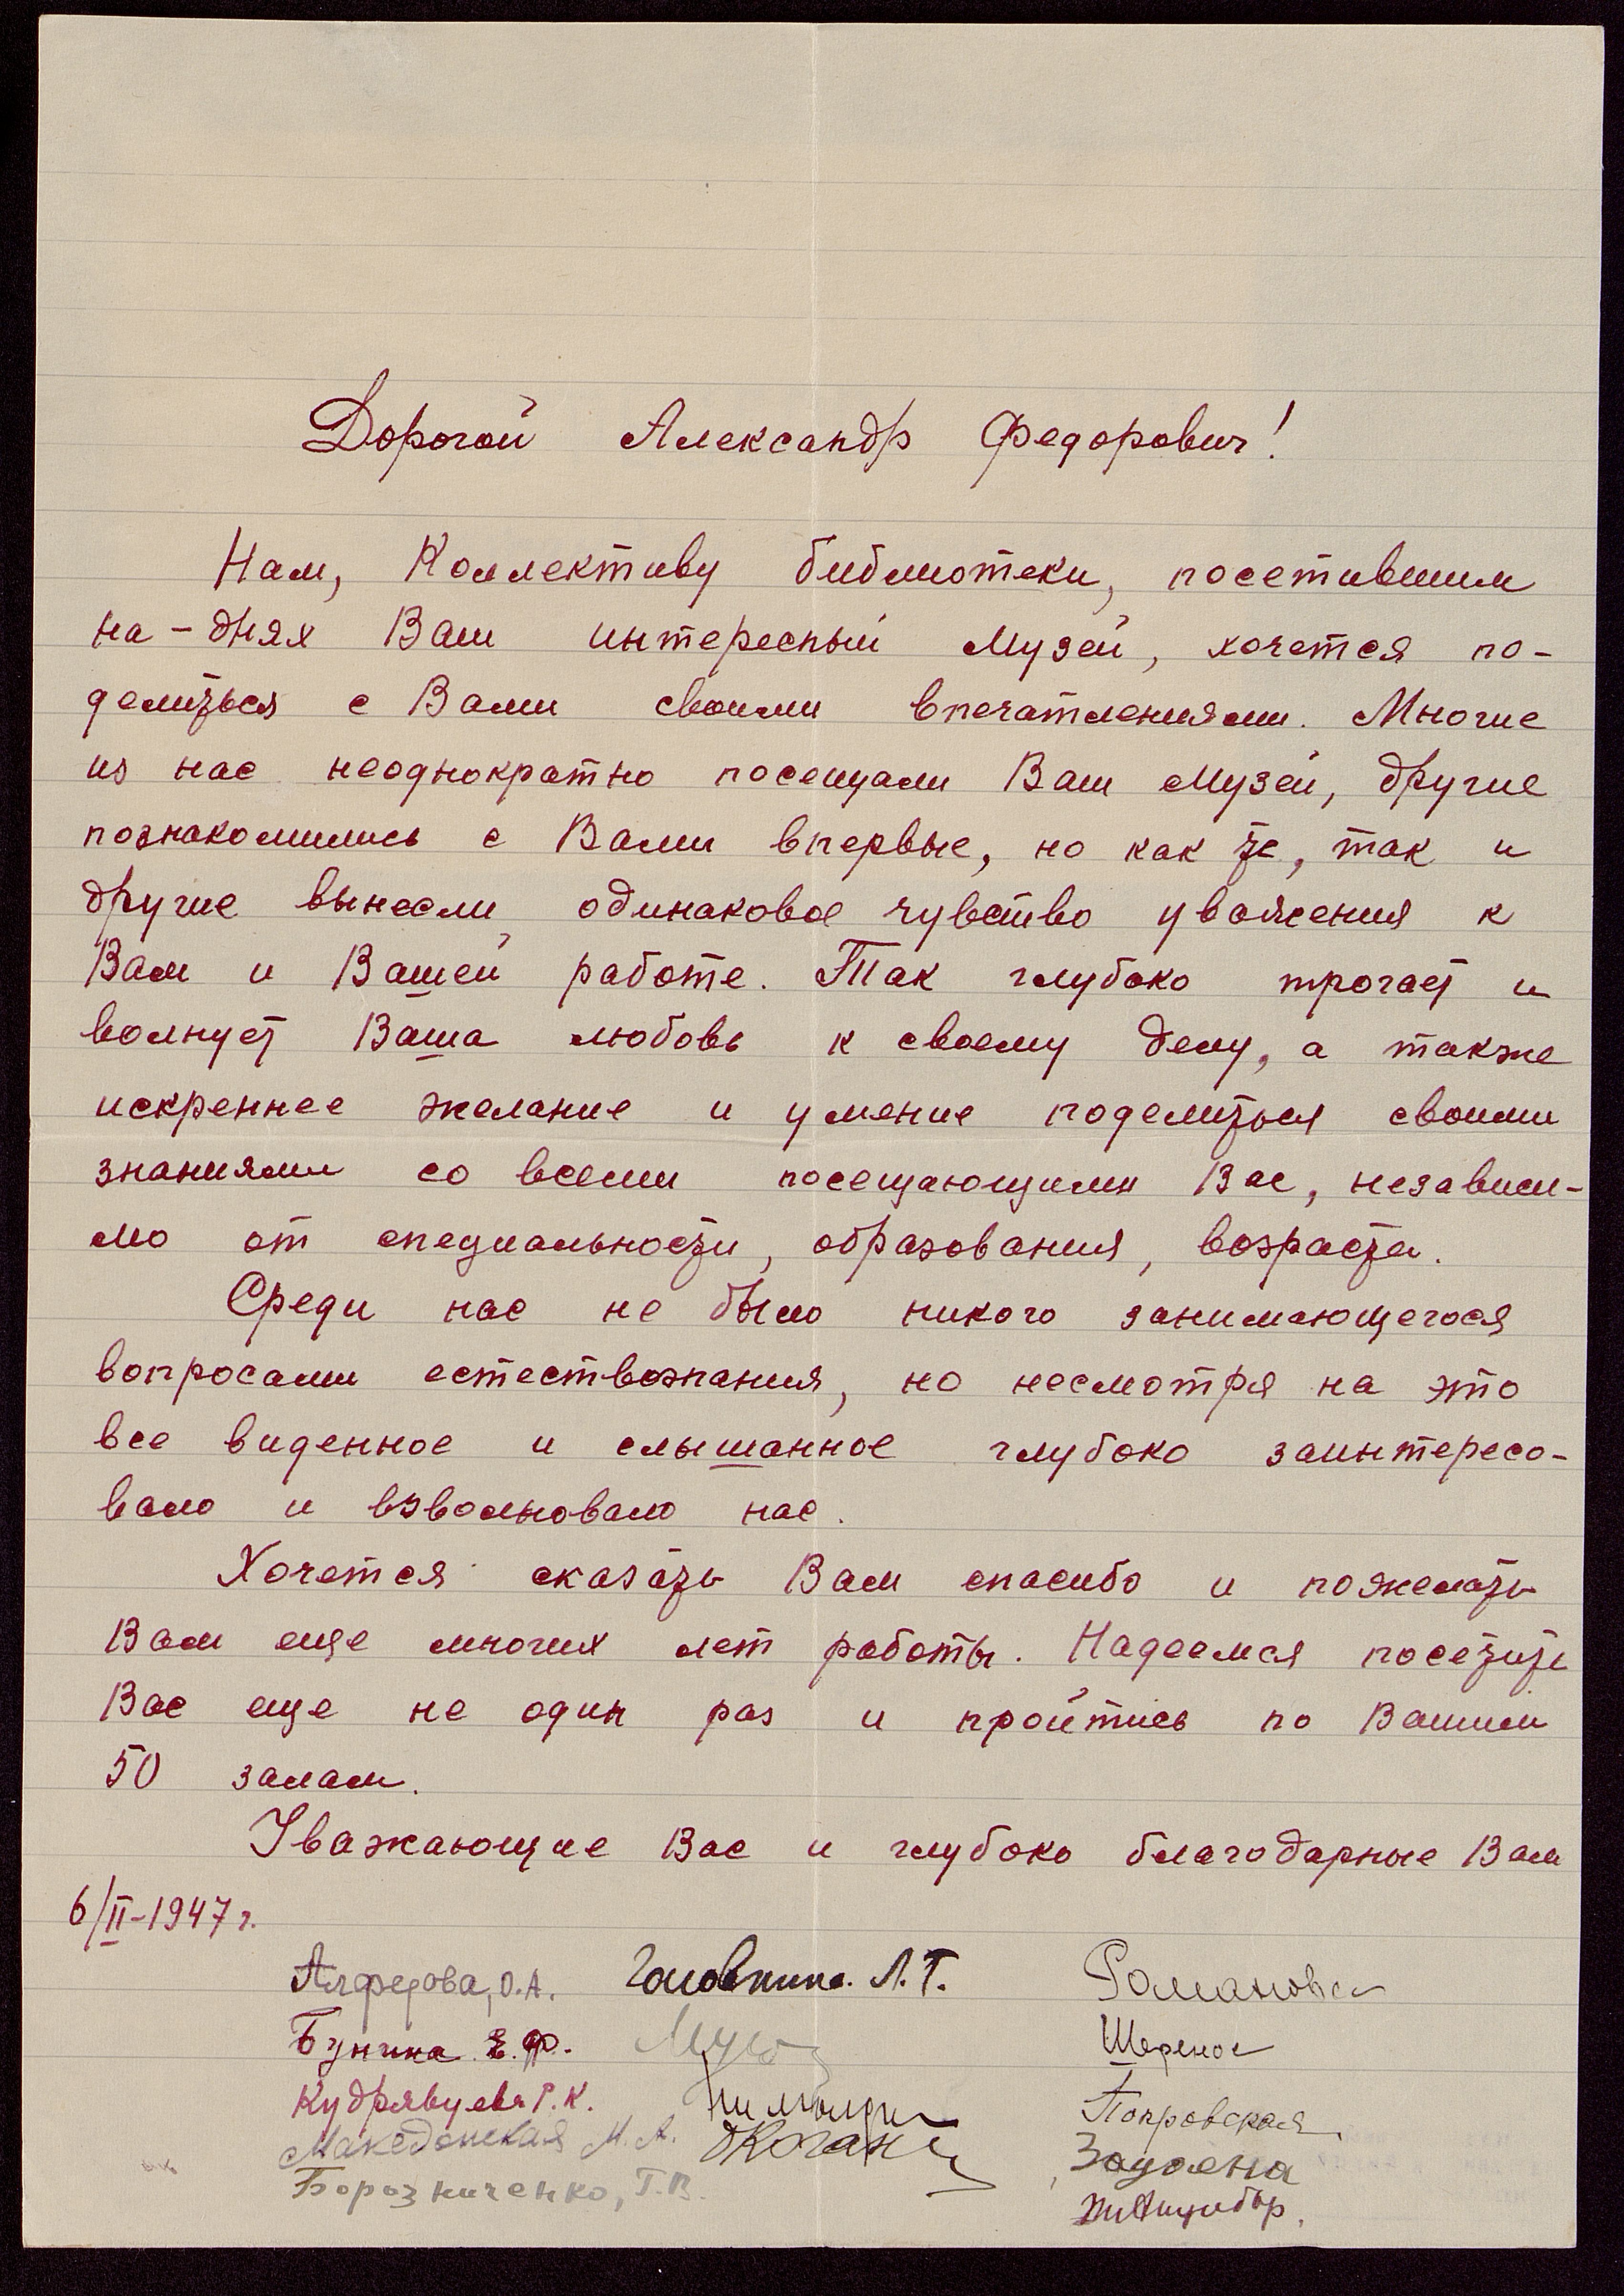 Дорогой Александр Федорович!
Нам, Коллективу библиотеки, посетившим
на-днях Ваш интересный Музей, хочется по-
делиться с Вами своими впечатлениями. Многие
из нас неоднократно посещали Ваш Музей, другие
познакомились с Вами впервые, но как те, так и
другие вынесли одинаковое чувство уважения к
Вам и Вашей работе. Так глубоко трогает и
волнует Ваша любовь к своему делу, а также
искреннее желание и умение поделиться своими
знаниями со всеми посещающими Вас, независи-
мо от специальности, образования, возраста.
Среди нас не было никого занимающегося
вопросами естествознания, но несмотря на это
все виденное и слышанное глубоко заинтересо-
вало и взволновало нас.
Хочется сказать Вам спасибо и пожелать
Вам еще многих лет работы. Надеемся посетить
Вас еще не один раз и пройтись по Вашим
50 залам.
Уважающие Вас и глубоко благодарные Вам
6/II-1947 г.
Алферова, О.А. Головкина. Л.Т. Романовск
Бунина Е.Ф.
Кудрявцева Г.К. Покровская
Македонская М.А. Коган
Борозниченко, Г.В.